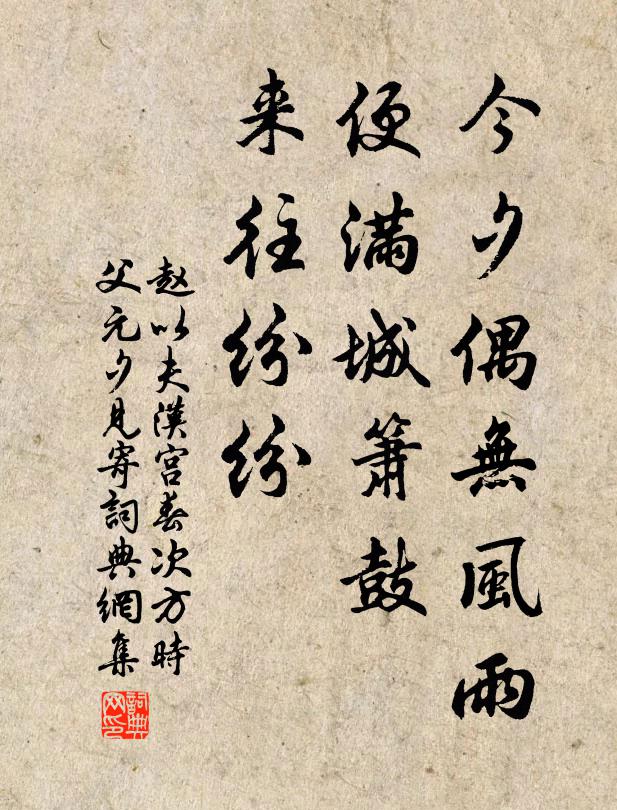 今夕偶無風雨
便滿城簫鼓
来往紛紛
赵以夫漢宮春次方時
父元夕見寄詞典網集
詞典
网印